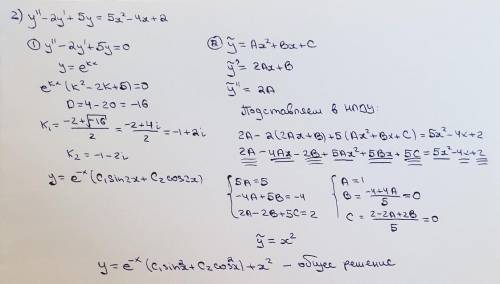 2) y'' - 2y' + 5y = 5x² - 4x + 2
① y'' - 2y' + 5y = 0
y = e^{kx}
e^{kx} (k² - 2k + 5) = 0
D = 4 - 20 = -16
k₁ = \frac{-2 + \sqrt{-16}}{2} = \frac{-2 + 4i}{2} = -1 + 2i
k₂ = -1 - 2i
y = e^{-x} (C₁ sin2x + C₂ cos2x)
② ỹ = Ax² + Bx + C
ỹ' = 2Ax + B
ỹ'' = 2A
Подставляем в НЛДУ:
2A - 2(2Ax + B) + 5(Ax² + Bx + C) = 5x² - 4x + 2
2A - 4Ax - 2B + 5Ax² + 5Bx + 5C = 5x² - 4x + 2
{ 5A = 5
-4A + 5B = -4
2A - 2B + 5C = 2
{ A = 1
B = \frac{-4 + 4A}{5} = 0
C = \frac{2 - 2A + 2B}{5} = 0
ỹ = x²
y = e^{-x} (C₁ sin2x + C₂ cos2x) + x² - общее решение